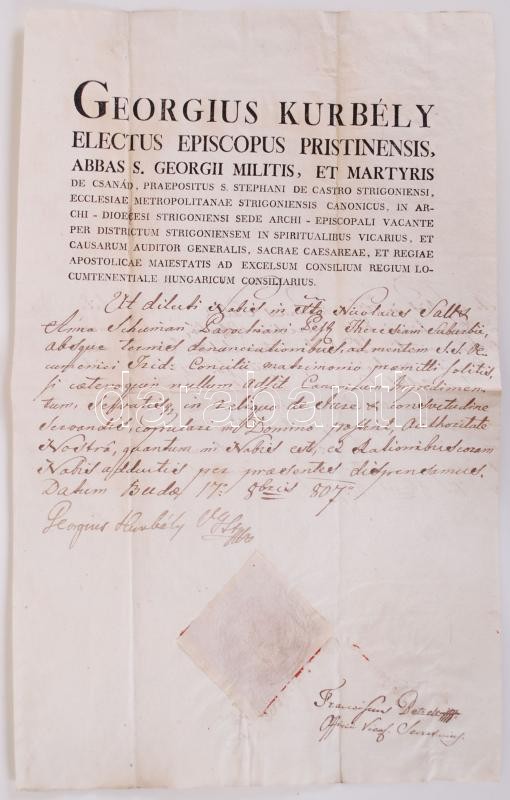 GEORGIUS KURBÉLY
ELECTUS EPISCOPUS PRISTINENSIS,
ABBAS S. GEORGII MILITIS, ET MARTYRIS
DE CSANÁD, PRAEPOSITUS S. STEPHANI DE CASTRO STRIGONIENSI,
ECCLESIAE METROPOLITANAE STRIGONIENSIS CANONICUS, IN AR-
CHI-DIOECESI STRIGONIENSI SEDE ARCHI-EPISCOPALI VACANTE
PER DISTRICTUM STRIGONIENSEM IN SPIRITUALIBUS VICARIUS, ET
CAUSARUM AUDITOR GENERALIS, SACRAE CAESAREAE, ET REGIAE
APOSTOLICAE MAIESTATIS AD EXCELSUM CONSILIUM REGIUM LO-
CUMTENENTIALE HUNGARICUM CONSILIARIUS.
Ut dilecti Nobis in Nicolaus
Anna Schuman Parochiani Theresiani Suburbii,
absque ternis denunciationibus, ad mentem S.S.
cumenici Trid: Concilii matrimonio praemitti solitis
si caeteroquin nullum adsit Canonicum Impedimen-
tum, in reliquo de Jure & Consvetudine
Servandis, copulari in Domino possint, Authoritate
Nostrâ, quantum in Nobis est, ex Rationibus coram
Nobis adductis per praesentes dispensamus.
Datum Budae 17ª 8bris 807º
Georgius Kurbély
darabanth
Franciscus
Officii Vicar. Secretarius